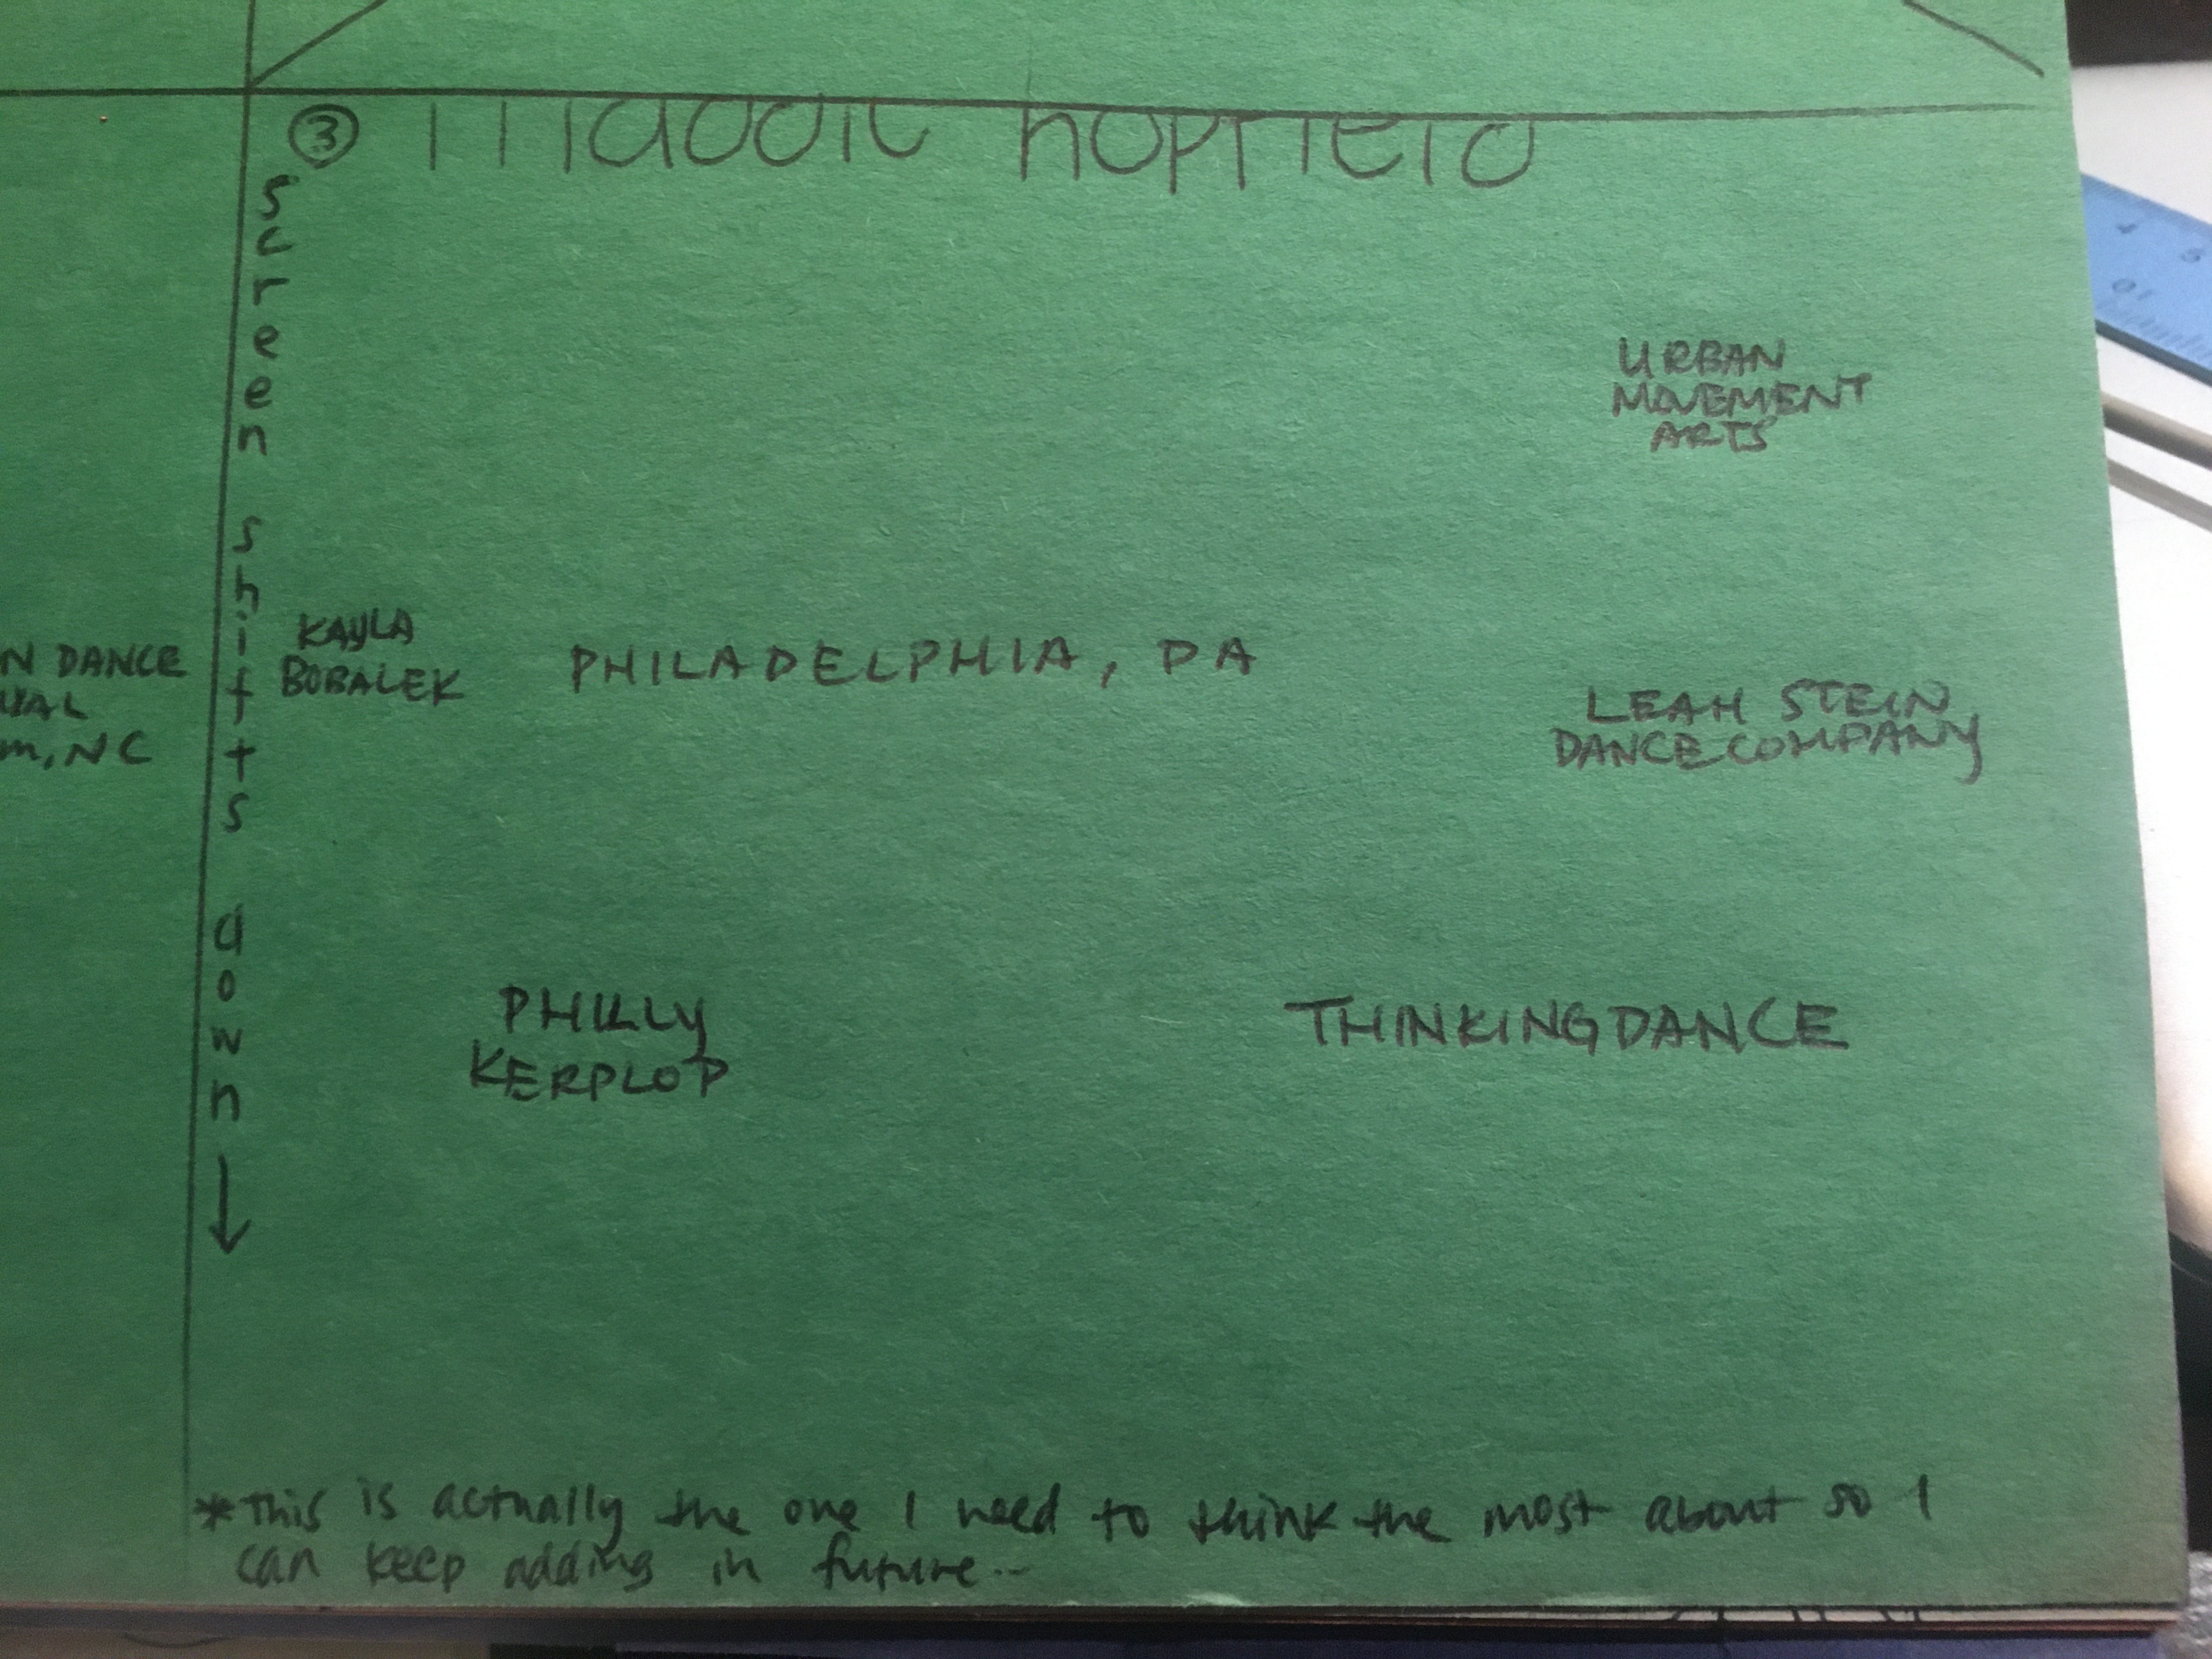 ③ maddie hopfield
screen shifts down
URBAN
MOVEMENT
ARTS
KAYLA
BOBALEK
PHILADELPHIA, PA
N DANCE
m, NC
LEAH STEIN
DANCE COMPANY
PHILLY
KERPLOP
THINKINGDANCE
*This is actually the one I need to think the most about so I
can keep adding in future..
4 5
10